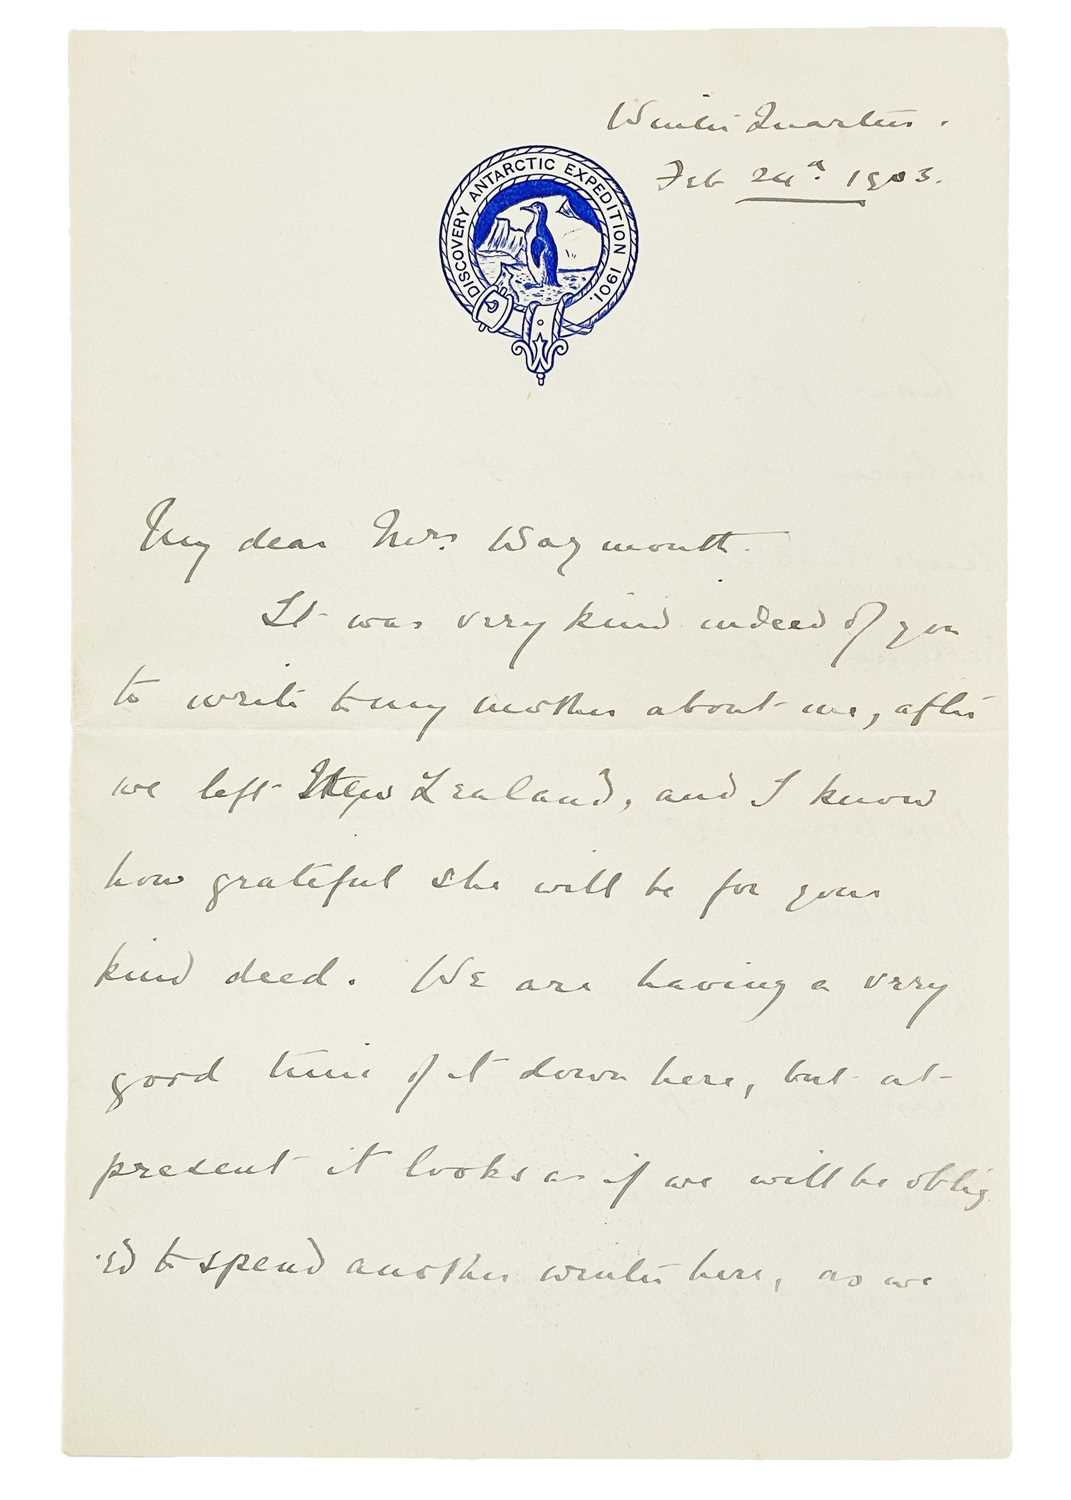 Winter Quarters.
Feb 24th. 1903.
DISCOVERY ANTARCTIC EXPEDITION 1901.
My dear Mrs. Waymouth.
It was very kind indeed of you
to write to my mother about me, after
we left New Zealand, and I know
how grateful she will be for your
kind deed. We are having a very
good time of it down here, but at
present it looks as if we will be oblig
-ed to spend another winter here, as we